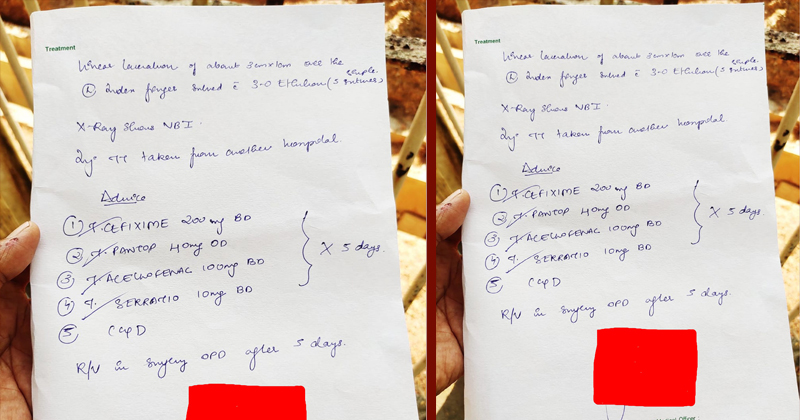 Treatment
Linear laceration of about 3cm x 1cm over the
(L) Index finger sutured c̄ 3-0 Ethilon (5 simple sutures)
X-Ray shows NBI.
Inj TT taken from another hospital.
Advice
① T. CEFIXIME 200 mg BD
② T. PANTOP 40mg OD
③ T. ACECLOFENAC 100mg BD
④ T. SERRATIO 10mg BD
} X 5 days.
⑤ C&D
R/V in Surgery OPD after 5 days.
Treatment
Linear laceration of about 3cm x 1cm over the
(L) Index finger sutured c̄ 3-0 Ethilon (5 simple sutures)
X-Ray shows NBI.
Inj TT taken from another hospital.
Advice
① T. CEFIXIME 200 mg BD
② T. PANTOP 40mg OD
③ T. ACECLOFENAC 100mg BD
④ T. SERRATIO 10mg BD
} X 5 days
⑤ C&D
R/V in Surgery OPD after 5 days.
Medical Officer